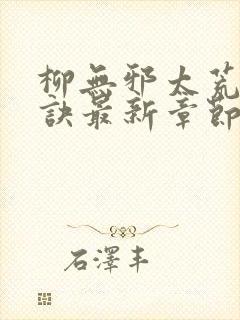 柳無邪太荒
訣最新章節
石澤丰